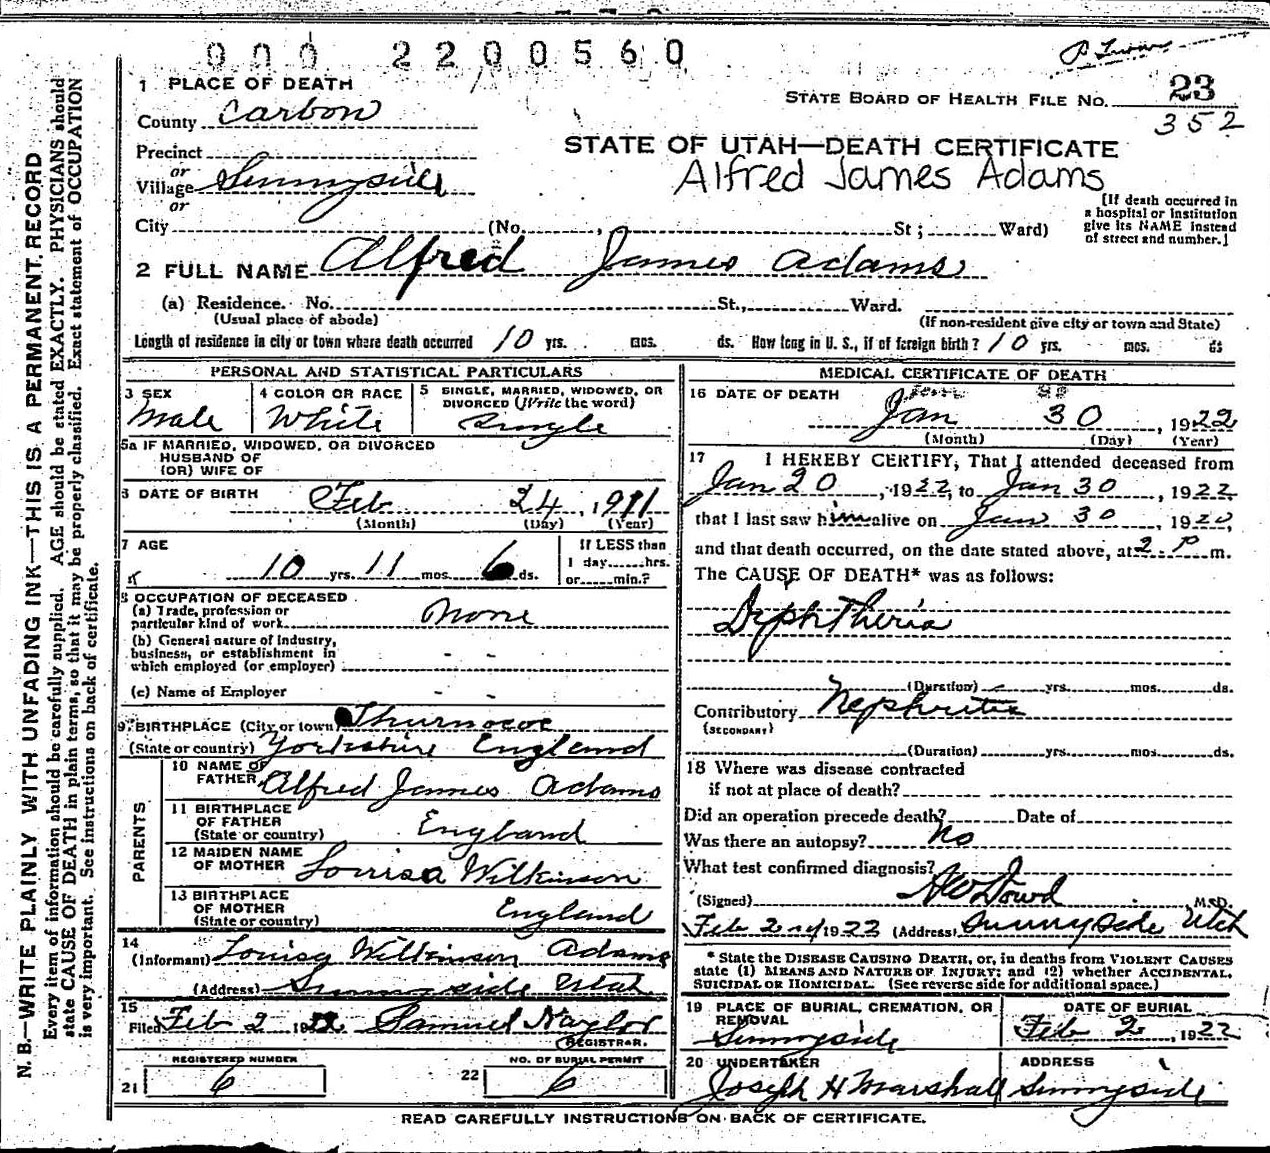 000 2200560
1 PLACE OF DEATH
County Carbon
Precinct
or
Village Sunnyside
or
City (No. , St; Ward)
STATE BOARD OF HEALTH FILE NO. 23
352
STATE OF UTAH—DEATH CERTIFICATE
Alfred James Adams
[If death occurred in
a hospital or institution
give its NAME instead
of street and number.]
2 FULL NAME Alfred James Adams
(a) Residence. No. St., Ward.
(Usual place of abode) (If non-resident give city or town and State)
Length of residence in city or town where death occurred 10 yrs. mos. ds. How long in U. S., if of foreign birth? 10 yrs. mos. ds
PERSONAL AND STATISTICAL PARTICULARS
3 SEX
Male
4 COLOR OR RACE
White
5 SINGLE, MARRIED, WIDOWED, OR
DIVORCED (Write the word)
Single
5a IF MARRIED, WIDOWED, OR DIVORCED
HUSBAND OF
(OR) WIFE OF
6 DATE OF BIRTH Feb 24, 1911
(Month) (Day) (Year)
7 AGE
10 yrs. 11 mos. 6 ds.
If LESS than
1 day hrs.
or min.?
8 OCCUPATION OF DECEASED
(a) Trade, profession or
particular kind of work None
(b) General nature of industry,
business, or establishment in
which employed (or employer) - -
(c) Name of Employer - -
9 BIRTHPLACE (City or town) Thurnocoe
(State or country) Yorkshire England
PARENTS
10 NAME OF
FATHER Alfred James Adams
11 BIRTHPLACE
OF FATHER
(State or country) England
12 MAIDEN NAME
OF MOTHER Louisa Wilkinson
13 BIRTHPLACE
OF MOTHER
(State or country) England
14
(Informant) Louisa Wilkinson Adams
(Address) Sunnyside Utah
15
Filed Feb 2 1922 Samuel Naylor
REGISTRAR.
REGISTERED NUMBER
21 6
NO. OF BURIAL PERMIT
22 6
MEDICAL CERTIFICATE OF DEATH
16 DATE OF DEATH
Jan 30, 1922
(Month) (Day) (Year)
17 I HEREBY CERTIFY, That I attended deceased from
Jan 20, 1922, to Jan 30, 1922
that I last saw him alive on Jan 30, 1922,
and that death occurred, on the date stated above, at 2 P m.
The CAUSE OF DEATH* was as follows:
Diphtheria
(Duration) yrs. mos. ds.
Contributory Nephritis
(SECONDARY)
(Duration) yrs. mos. ds.
18 Where was disease contracted
if not at place of death?
Did an operation precede death? Date of
Was there an autopsy? No
What test confirmed diagnosis?
(Signed) AW Dowd M.D.
Feb 2nd 1922 (Address) Sunnyside Utah
* State the DISEASE CAUSING DEATH, or, in deaths from VIOLENT CAUSES
state (1) MEANS AND NATURE OF INJURY; and (2) whether ACCIDENTAL,
SUICIDAL OR HOMICIDAL. (See reverse side for additional space.)
19 PLACE OF BURIAL, CREMATION, OR
REMOVAL
Sunnyside
DATE OF BURIAL
Feb 2, 1922
20 UNDERTAKER
Joseph H Marshall
ADDRESS
Sunnyside
READ CAREFULLY INSTRUCTIONS ON BACK OF CERTIFICATE.
N. B.—WRITE PLAINLY WITH UNFADING INK—THIS IS A PERMANENT RECORD
Every item of information should be carefully supplied. AGE should be stated EXACTLY. PHYSICIANS should
state CAUSE OF DEATH in plain terms, so that it may be properly classified. Exact statement of OCCUPATION
is very important. See instructions on back of certificate.